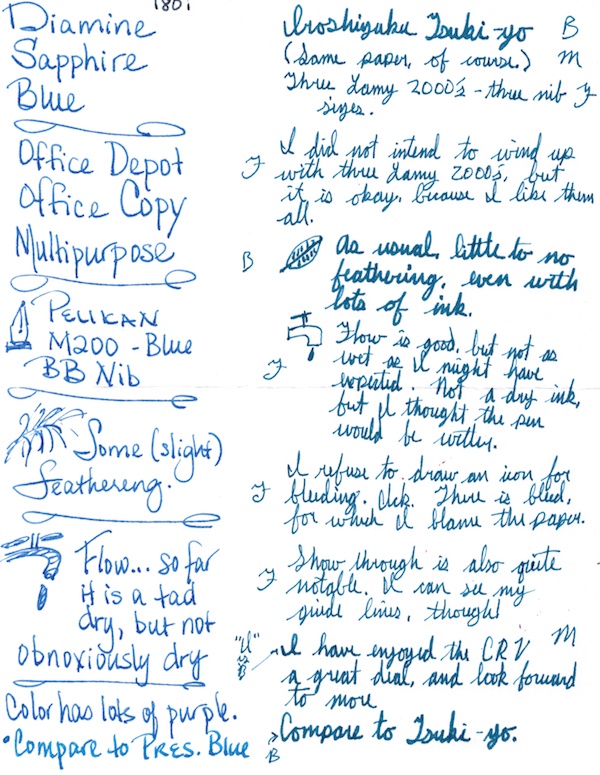 1801
Diamine
Sapphire
Blue
Office Depot
Office Copy
Multipurpose
PELIKAN
M200 - Blue
BB Nib
Some (slight)
feathereng.
Flow... so far
it is a tad
dry, but not
obnoxiously dry
Color has lots of purple.
• Compare to PRES. Blue
Iroshizuku Tsuki-yo B
(Same paper, of course.) M
Three Lamy 2000's - three nib F
sizes.
F I did not intend to wind up
with three Lamy 2000's, but
it is okay, because I like them
all.
B As usual, little to no
feathering, even with
lots of ink.
Flow is good, but not as
wet as I might have
F expected. Not a dry ink,
but I thought the pen
would be wetter.
I refuse to draw an icon for
F bleeding. Ick. There is bleed,
for which I blame the paper.
Show through is also quite
F notable. I can see my
guide lines, though!
"I" I have enjoyed the CRV M
B a great deal, and look forward
to more
Compare to Tsuki-yo.
B